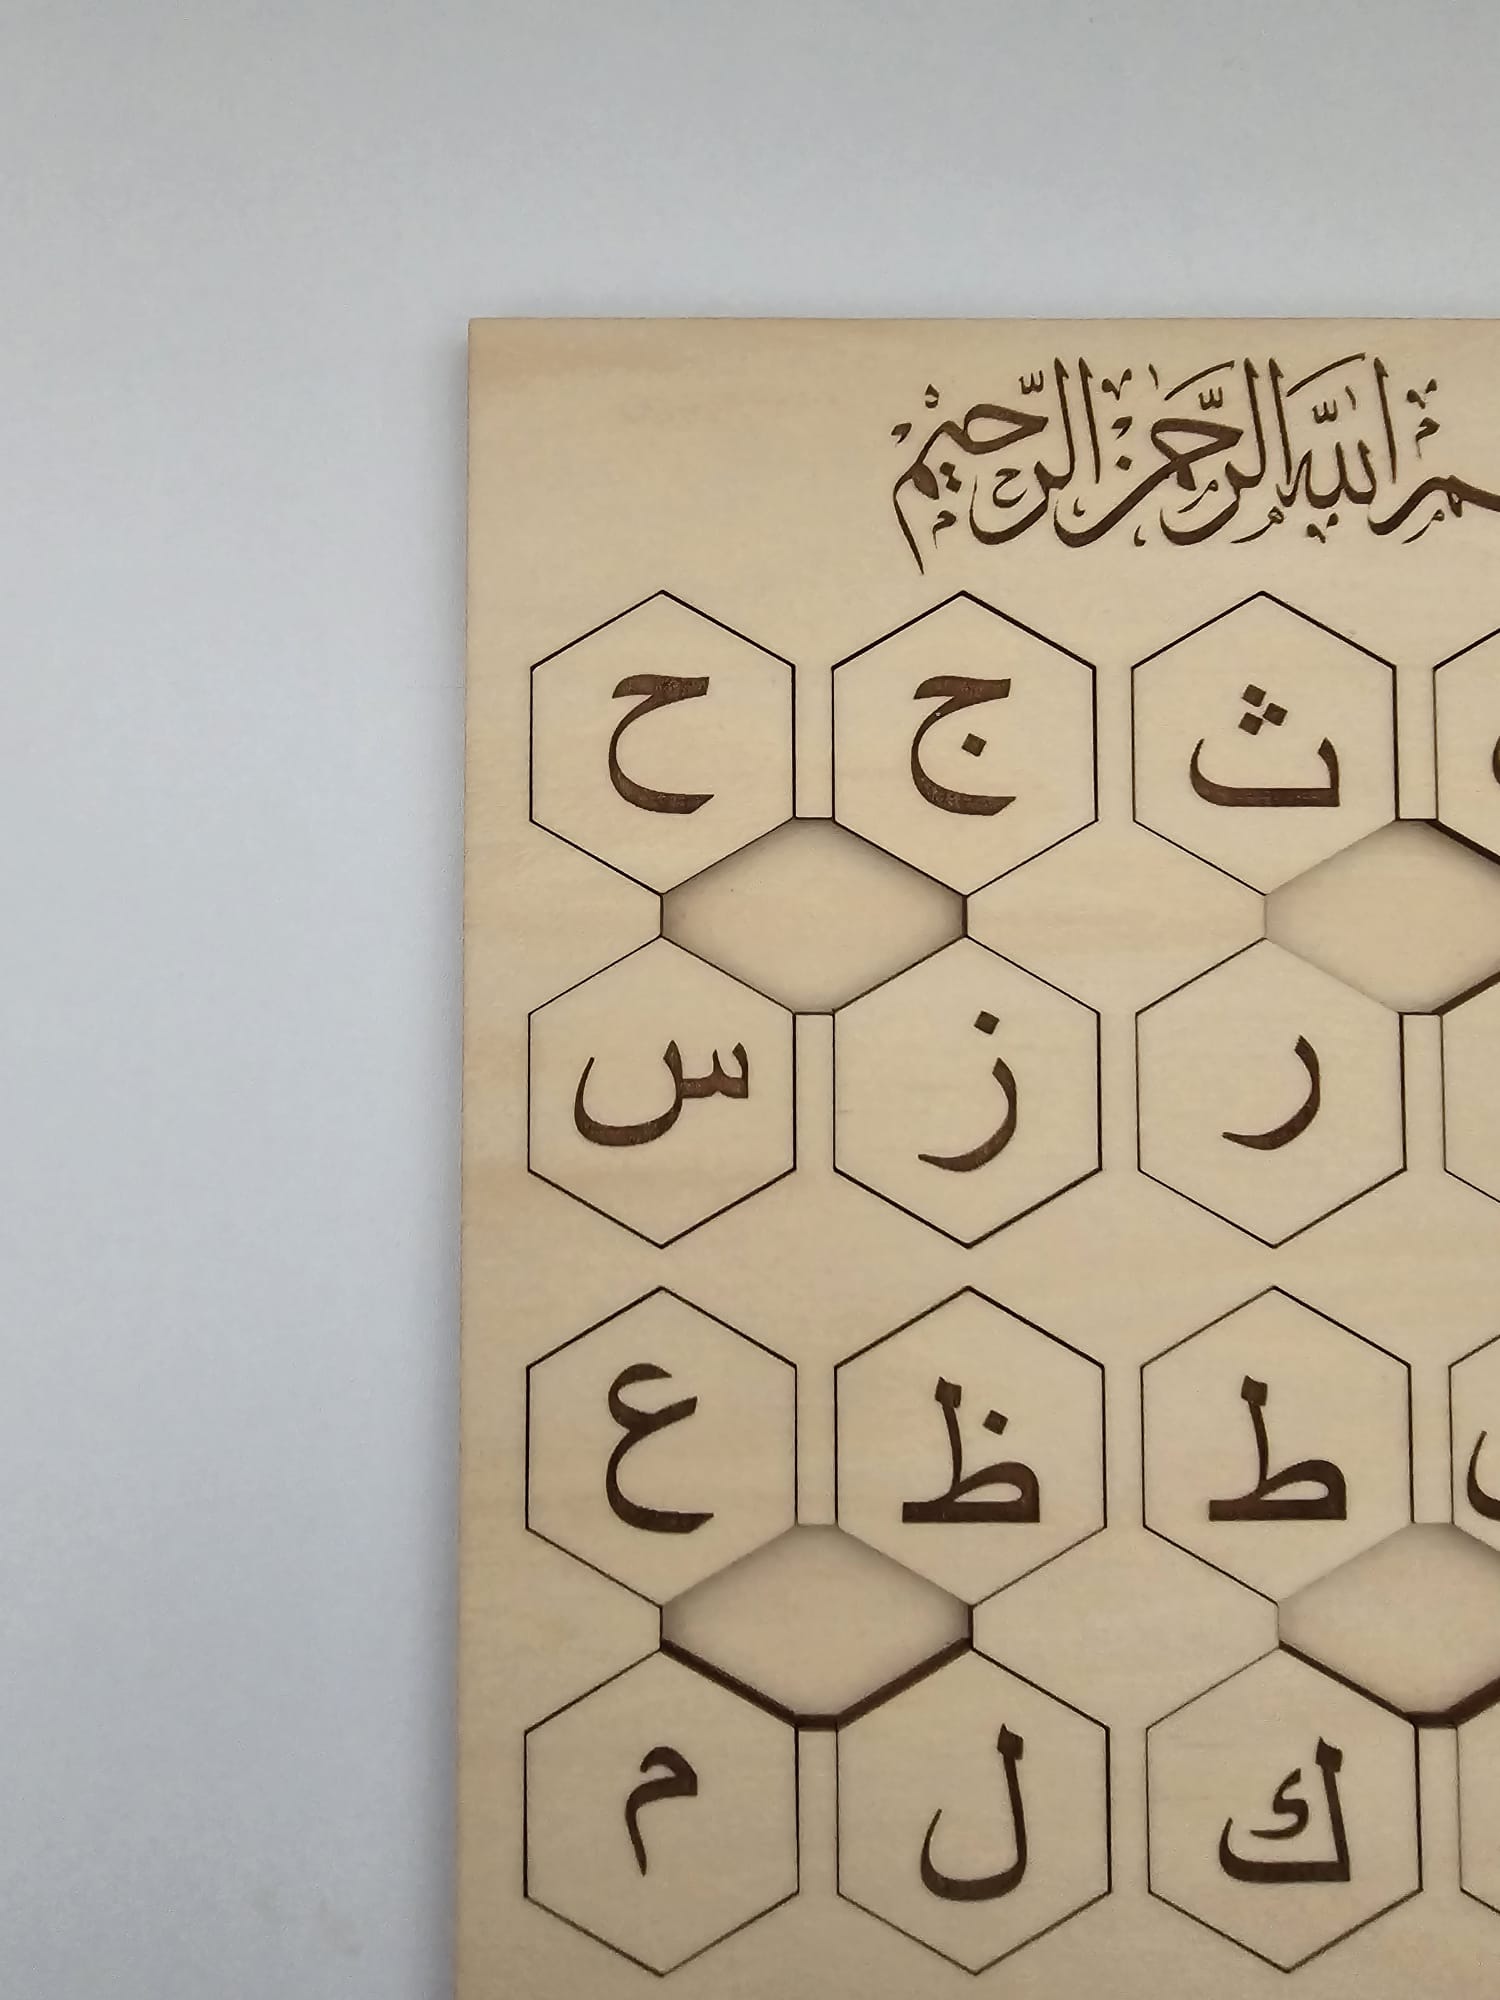 الله الرحمن الرحيم
ث ج ح
ر ز س
ط ظ ع
ك ل م